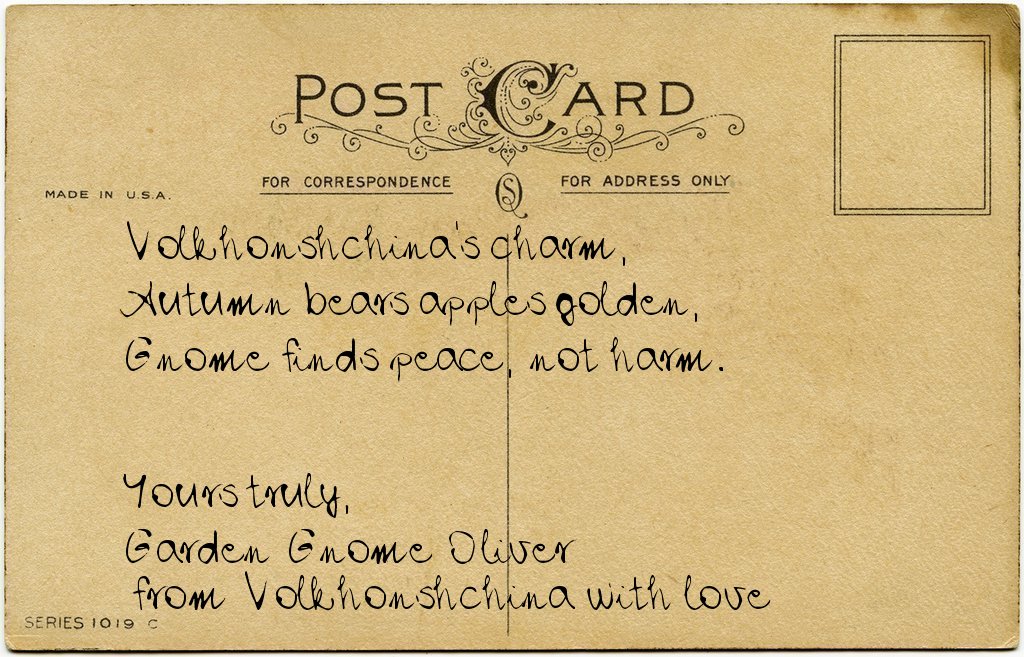 POST CARD
FOR CORRESPONDENCE
FOR ADDRESS ONLY
MADE IN U.S.A.
Volkhonshchina's charm,
Autumn bears apples golden,
Gnome finds peace, not harm.
Yours truly,
Garden Gnome Oliver
from Volkhonshchina with love
SERIES 1019 C